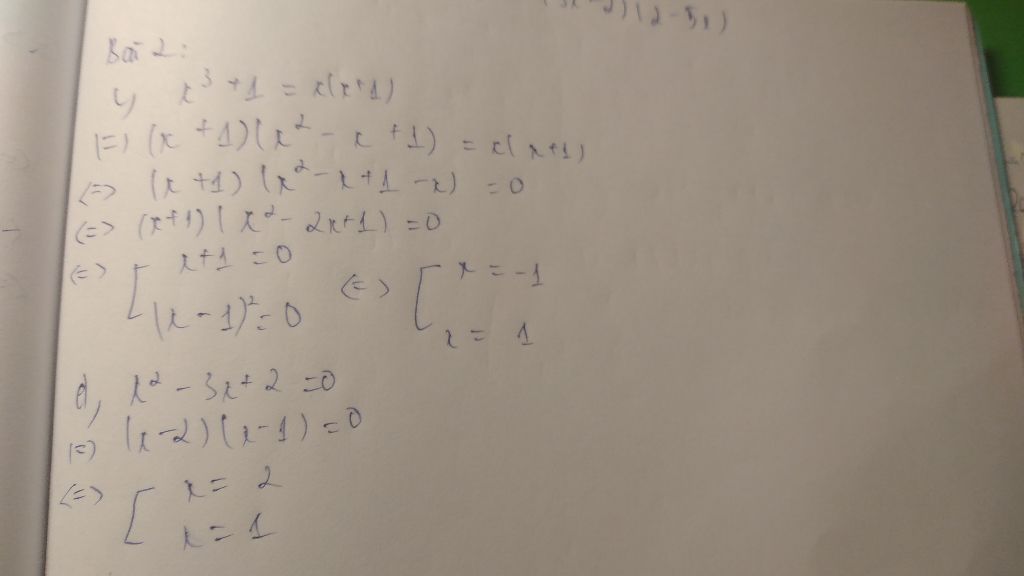 (3x-2)(2-5x)
Bài 2:
c, x³ + 1 = x(x+1)
(=) (x + 1)(x² - x + 1) = x(x+1)
<=> (x + 1)(x² - x + 1 - x) = 0
<=> (x+1)(x² - 2x + 1) = 0
<=> [ x+1 = 0 <=> [ x = -1
(x - 1)² = 0 x = 1
d, x² - 3x + 2 = 0
(=) (x-2)(x-1) = 0
<=> [ x = 2
x = 1